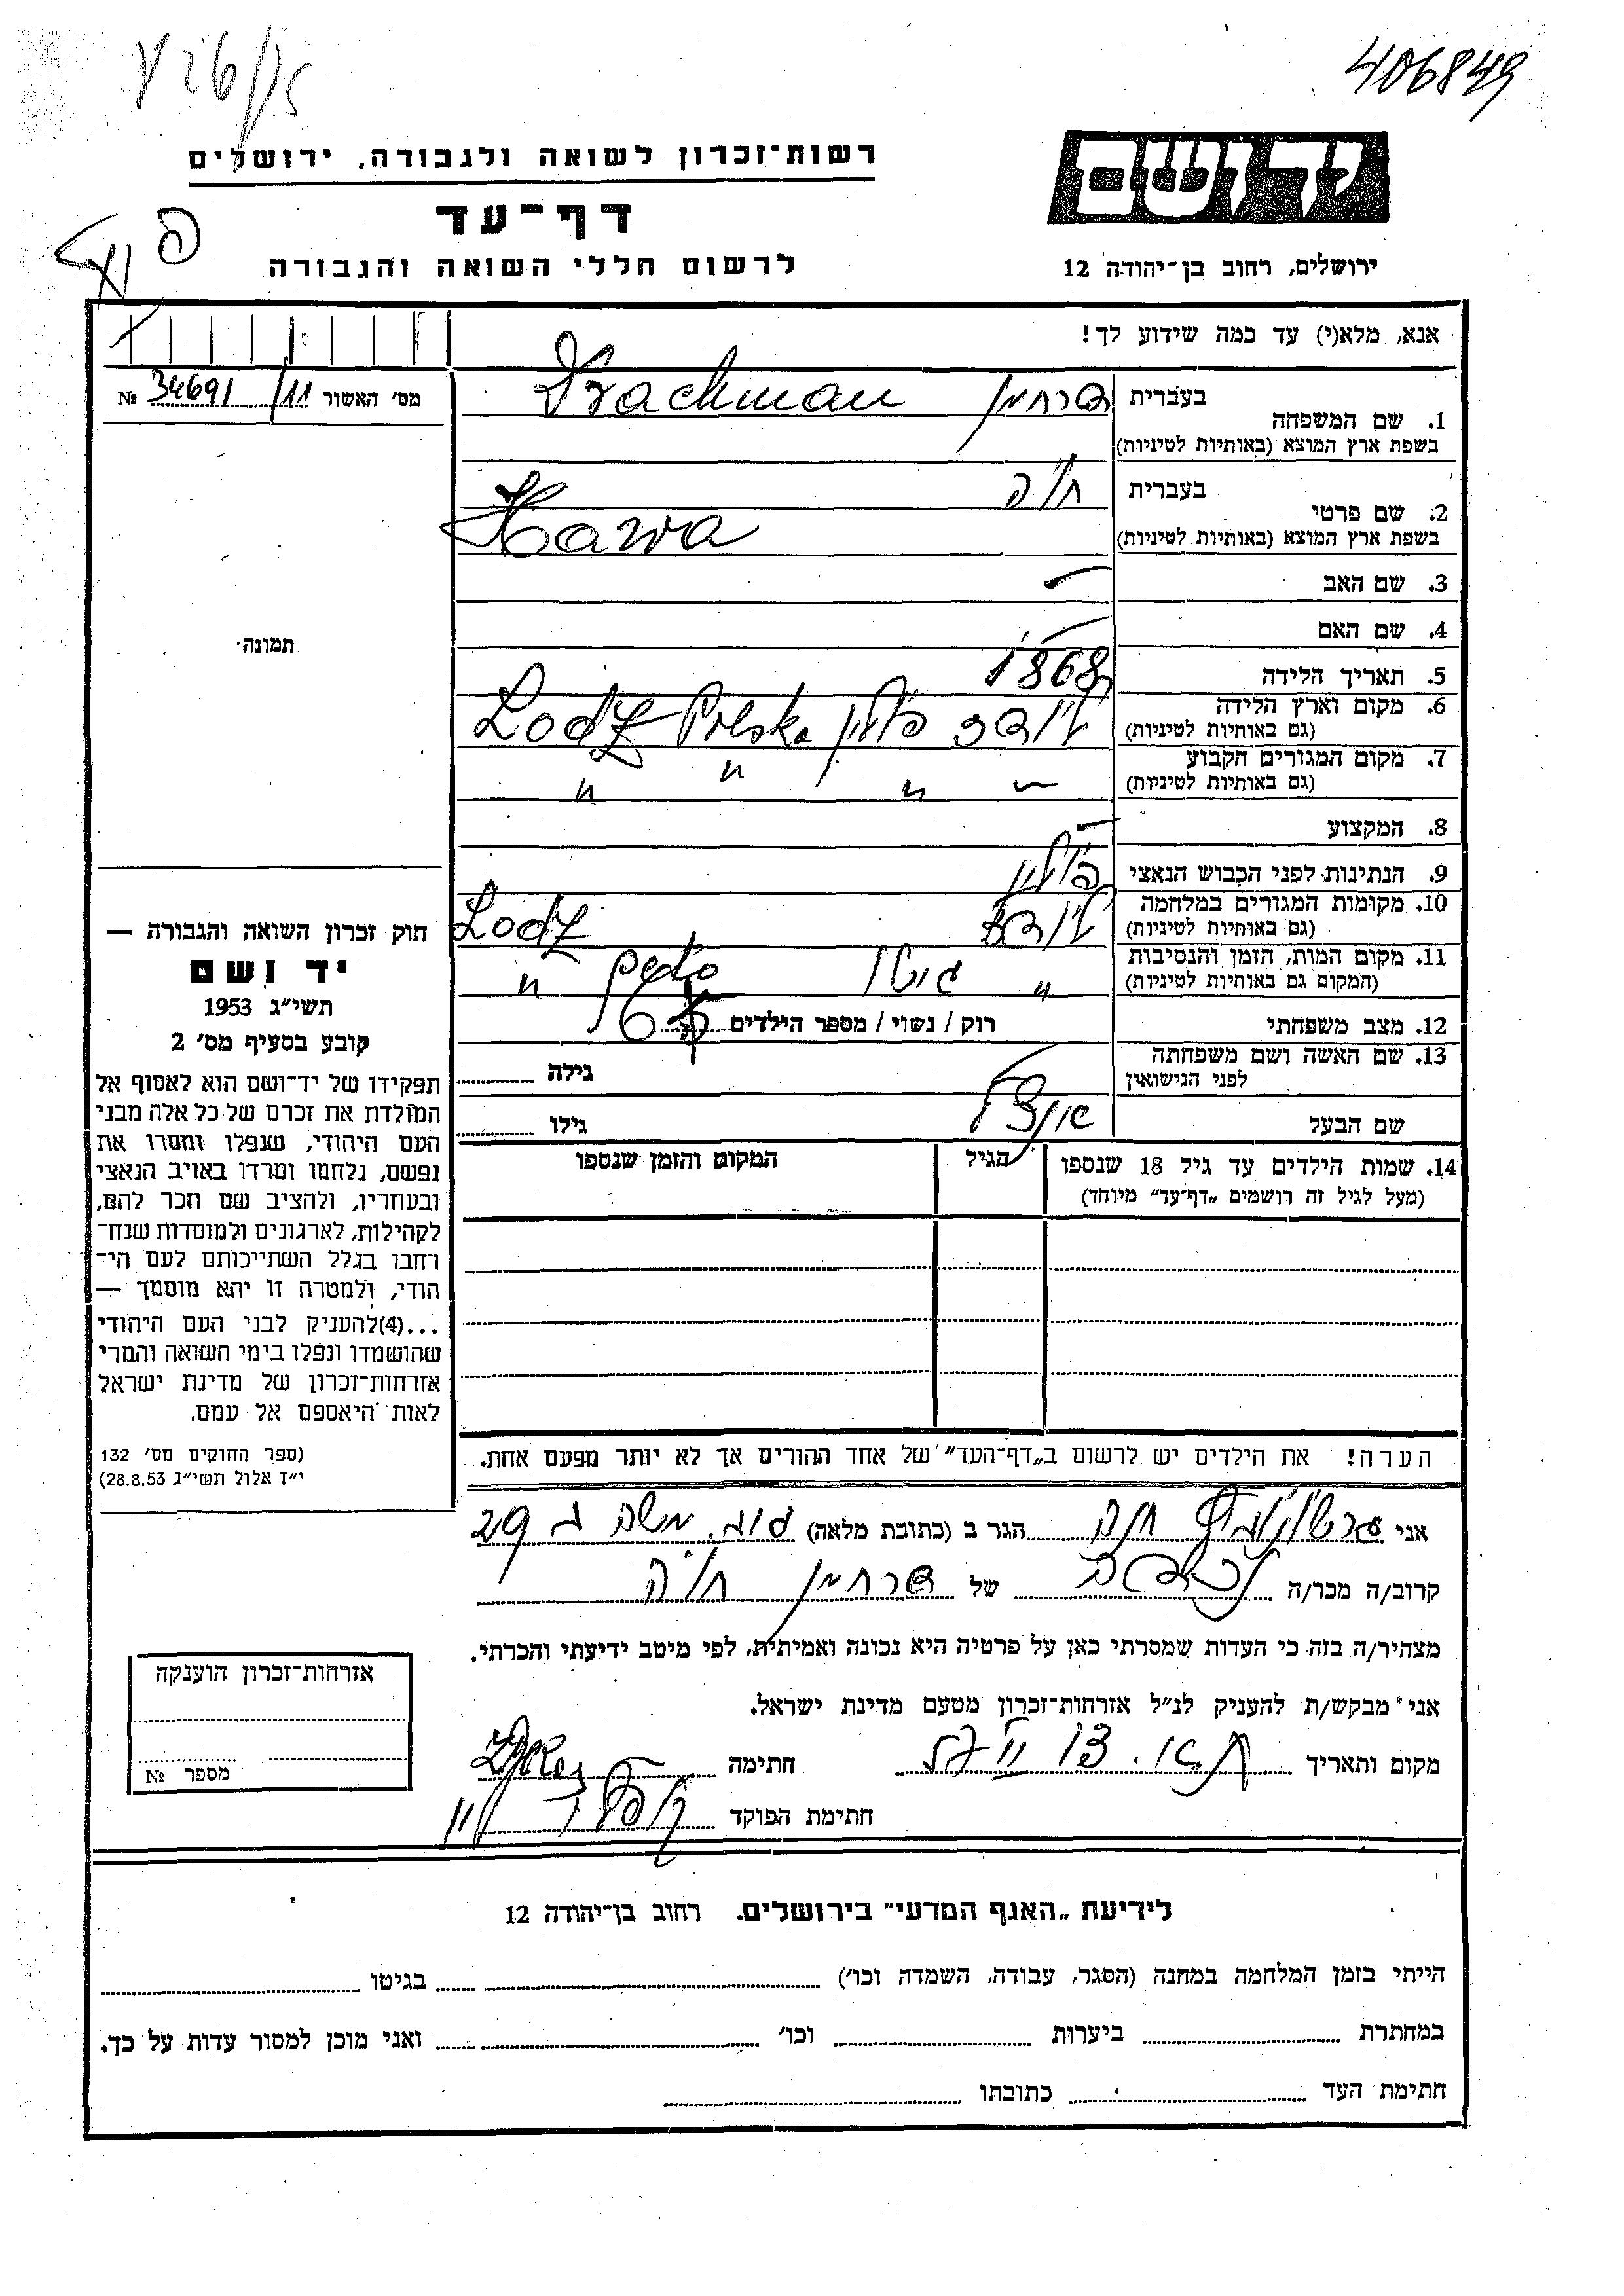 406849
יד ושם
רשות־זכרון לשואה ולגבורה, ירושלים
דף־עד
לרשום חללי השואה והגבורה
ירושלים, רחוב בן־יהודה 12
אנא, מלא(י) עד כמה שידוע לך!
מס' האשור 11/ 34691 №
תמונה
1. שם המשפחה
בעברית דרחמן
בשפת ארץ המוצא (באותיות לטיניות) Drachman
2. שם פרטי
בעברית חוה
בשפת ארץ המוצא (באותיות לטיניות) Hawa
3. שם האב –
4. שם האם –
5. תאריך הלידה 1868
6. מקום וארץ הלידה לודז פולין Lodz Polska
(גם באותיות לטיניות)
7. מקום המגורים הקבוע " " " "
(גם באותיות לטיניות)
8. המקצוע –
9. הנתינות לפני הכבוש הנאצי פולין
10. מקומות המגורים במלחמה לודז Lodz
(גם באותיות לטיניות)
11. מקום המות, הזמן והנסיבות " גיטו "
(המקום גם באותיות לטיניות)
12. מצב משפחתי רוק / נשוי / מספר הילדים
13. שם האשה ושם משפחתה
לפני הנישואין
גילה
שם הבעל
גילו
14. שמות הילדים עד גיל 18 שנספו
(מעל לגיל זה רושמים „דף־עד" מיוחד)
הגיל
המקום והזמן שנספו
הערה! את הילדים יש לרשום ב„דף־העד" של אחד ההורים אך לא יותר מפעם אחת.
חוק זכרון השואה והגבורה —
יד ושם
תשי"ג 1953
קובע בסעיף מס' 2
תפקידו של יד־ושם הוא לאסוף אל
המולדת את זכרם של כל אלה מבני
העם היהודי, שנפלו ומסרו את
נפשם, נלחמו ומרדו באויב הנאצי
ובעוזריו, ולהציב שם וזכר להם,
לקהילות, לארגונים ולמוסדות שנח־
רבו בגלל השתייכותם לעם הי־
הודי, ולמטרה זו יהא מוסמך —
...(4) להעניק לבני העם היהודי
שהושמדו ונפלו בימי השואה והמרי
אזרחות־זכרון של מדינת ישראל
לאות היאספם אל עמם.
(ספר החוקים מס' 132
י"ז אלול תשי"ג 28.8.53)
אני חנה הגר ב (כתובת מלאה) משה 29
קרוב/ה מכר/ה של דרחמן חוה
מצהיר/ה בזה כי העדות שמסרתי כאן על פרטיה היא נכונה ואמיתית, לפי מיטב ידיעתי והכרתי.
אני מבקש/ת להעניק לנ"ל אזרחות־זכרון מטעם מדינת ישראל.
מקום ותאריך חתימה
חתימת הפוקד
אזרחות־זכרון הוענקה
מספר №
לידיעת „האגף המדעי" בירושלים, רחוב בן־יהודה 12
הייתי בזמן המלחמה במחנה (הסגר, עבודה, השמדה וכו') בגיטו
במחתרת ביערות וכו' ואני מוכן למסור עדות על כך.
חתימת העד כתובתו